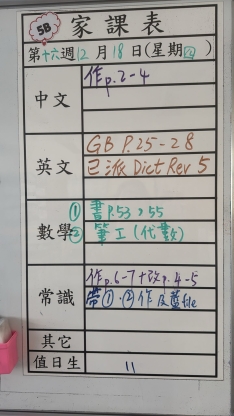 5B 家課表
第十六週12月18日(星期四)
中文 作p.2-4
英文 GB P.25-28
已派 Dict Rev 5
數學 ① 書P.53,55
② 筆工(代數)
常識 作p.6-7+改p.4-5
帶①.②作及藍file
其它
值日生 11